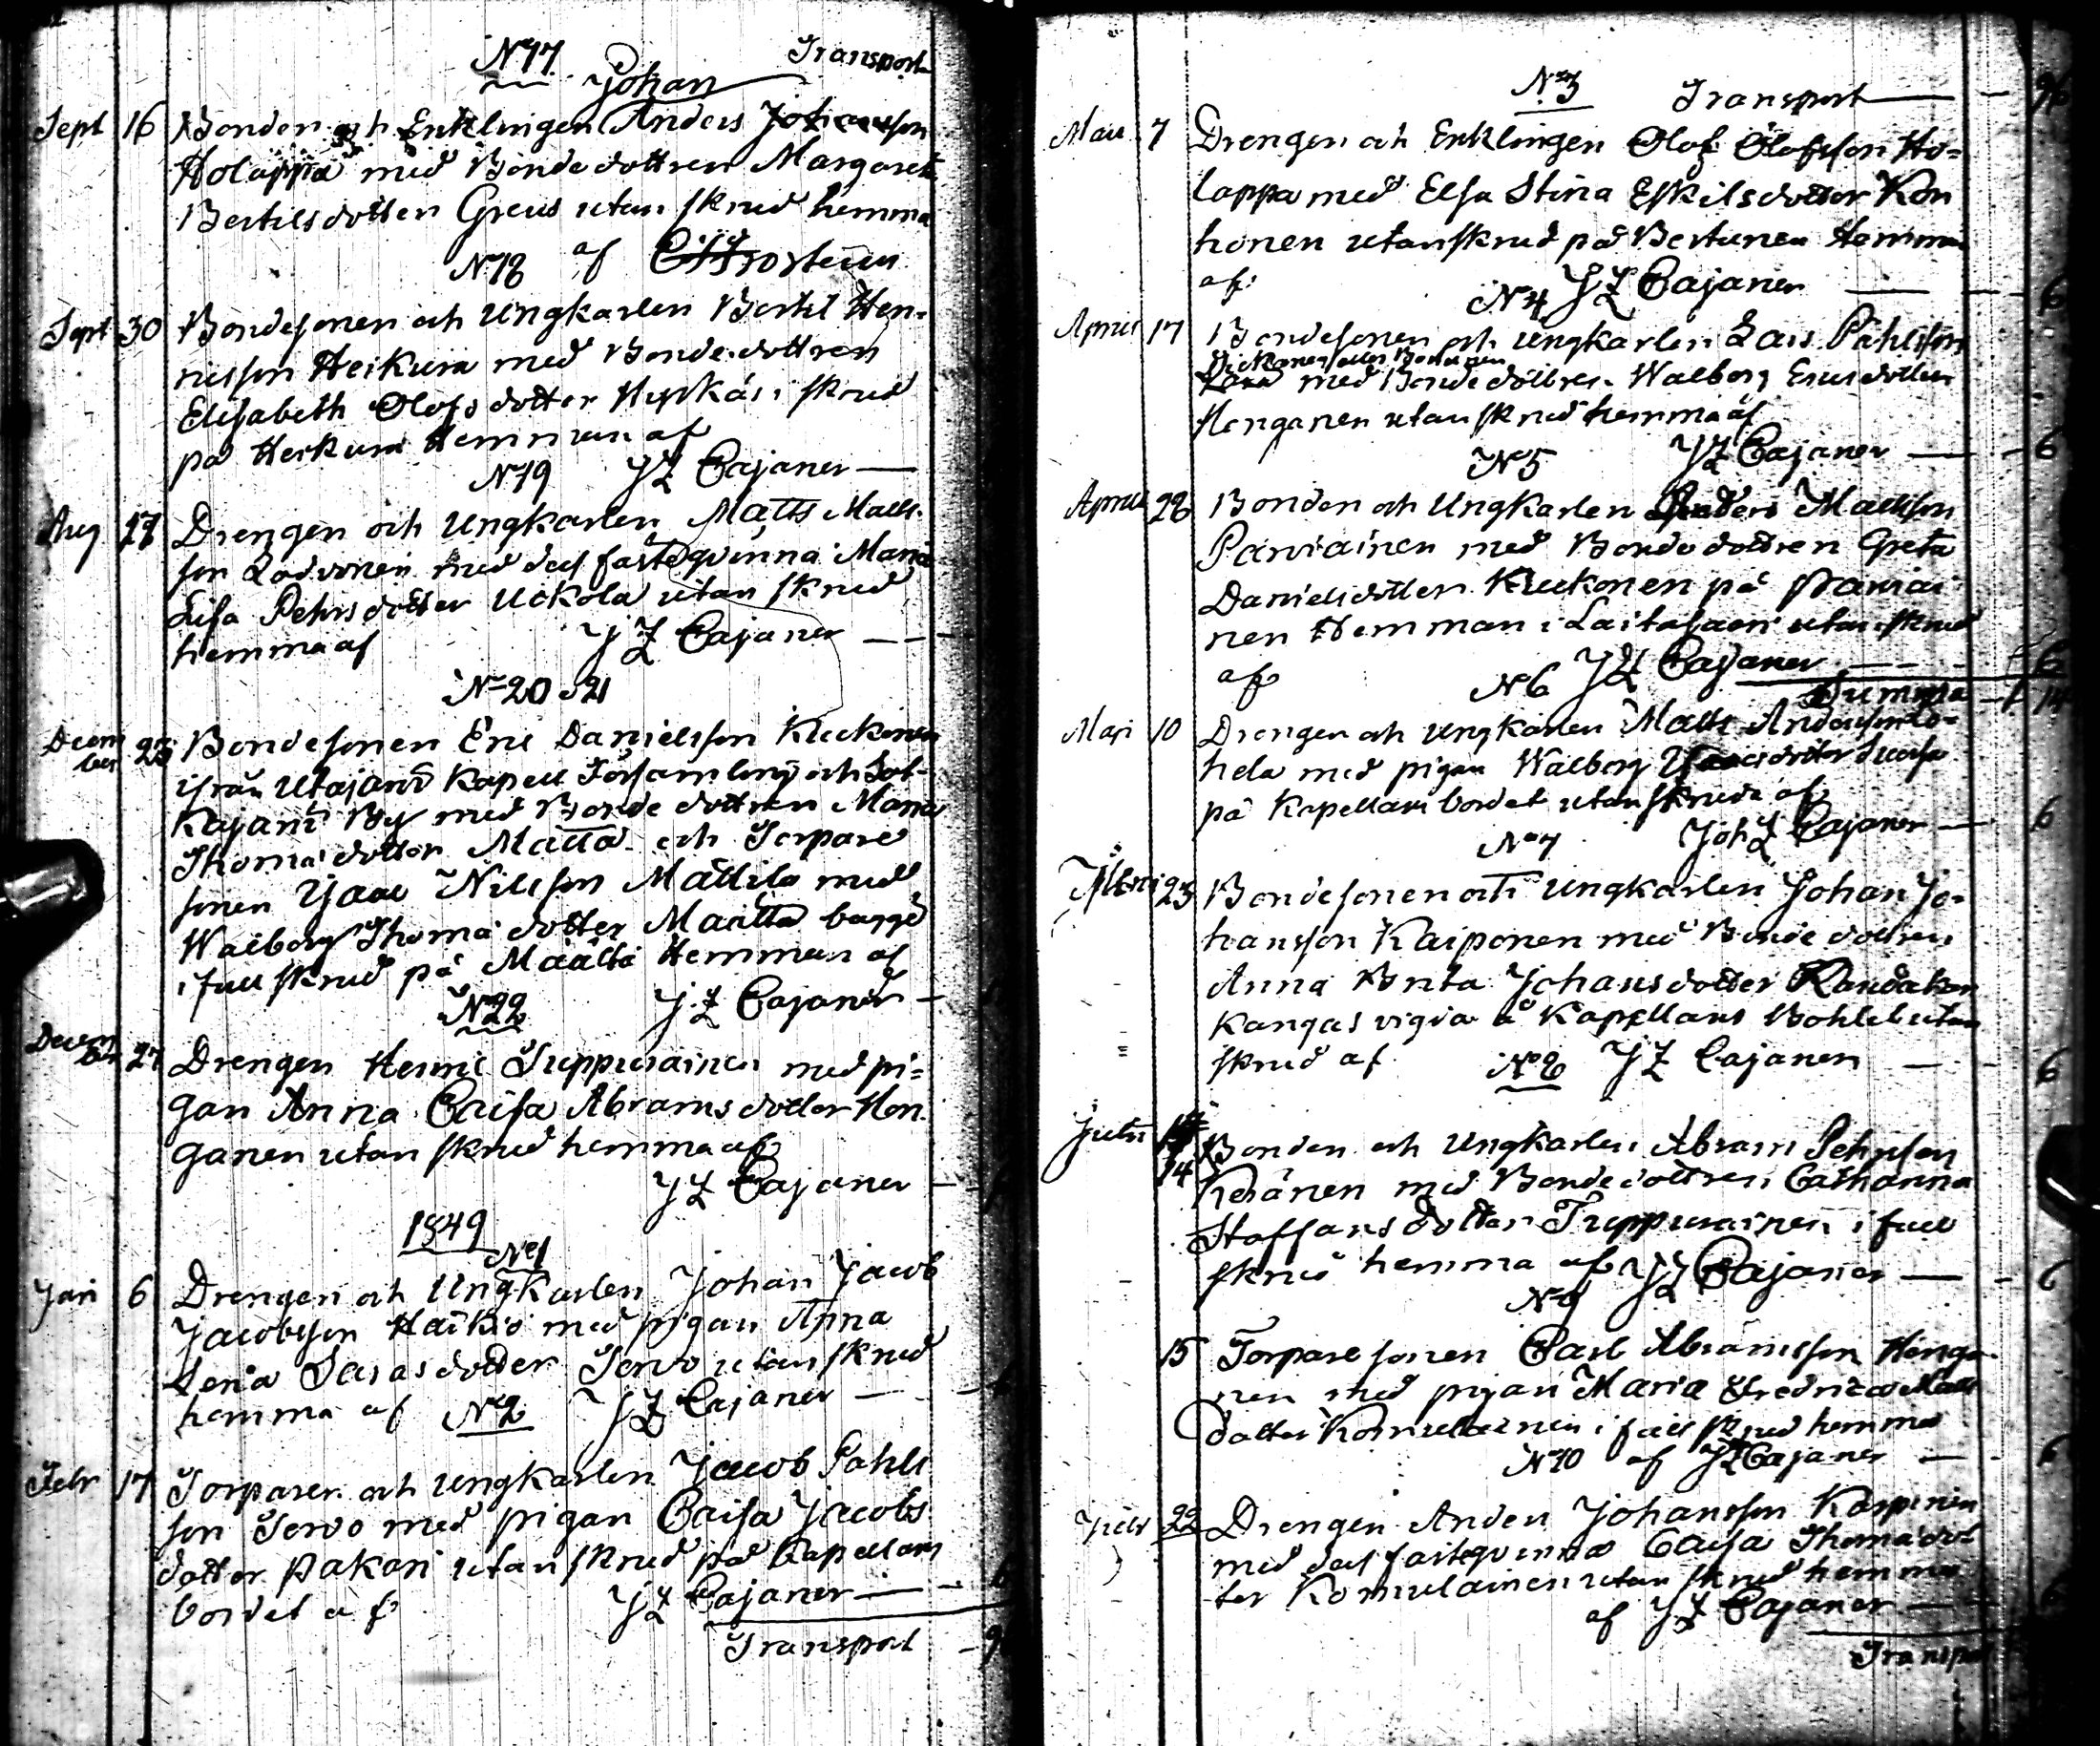 N17. Transport
Johan
Sept 16 Bonden och Enklingen Anders Johansson
Holappa med Bondedottren Margaret
Bertilsdotter Greus utan skrud hemma
N18 af
Sept 30 Bondesonen och Ungkarlen Bertil Hen-
ricsson Heikura med Bondedottren
Elisabeth Olofsdotter i skrud
på Heikura Hemman af
N19 JZ Cajaner
Aug 27 Drengen och Ungkarlen Matts Matts-
son med des fästeqvinna Maria
Lisa Pehrsdotter Uckola utan skrud
hemma af JZ Cajaner
N 20 o 21
Decem
ber 23 Bondesonen Eric Danielsson Kuckonen
ifrån Utajärvi Kapell Församling och Sot-
Kajarvi By med Bondedottren Maria
Thomadotter Määttä och Torpare
sonen Isaac Nilsson Mattila med
Walborg Thomadotter Määttä bägge
i full skrud på Määttä Hemman af
N22 JZ Cajaner
Decem
ber 27 Drengen Henric Tuppurainen med pi=
gan Anna Caisa Abramsdotter Hon
ganen utan skrud hemma af
JZ Cajaner
1849
N1
Jan 6 Drengen och Ungkarlen Johan Jacob
Jacobsson Häikiö med pigan Anna
Lena Servo utan skrud
hemma af N2 JZ Cajaner
Febr 17 Torparen och Ungkarlen Jacob Påhls
son Servo med pigan Caisa Jacobs
dotter Pakari utan skrud på Capellans
bordet af JZ Cajaner 6
Transport
N3 Transport 96
Mars 7 Drengen och Enklingen Olof Olofsson Ho=
lappa med Elsa Stina Eskilsdotter Kon
honen utan skrud på Bertunen Hemman
af JZ Cajaner 6
N4
April 17 Bondesonen och Ungkarlen Lars Påhlsson
Dickanen eller
med Bondedottren Walborg Ericsdotter
Honganen utan skrud hemma af
N5 JZ Cajaner 6
April 28 Bonden och Ungkarlen Anders Mattsson
Parviainen med Bondedottren Greta
Danielsdotter Kuckonen på Parviai
nen Hemman i Laitasaari utan skrud
af JZ Cajaner 6
N6 Summa
Maji 10 Drengen och Ungkarlen Matts Andersson Lo=
hela med pigan Walborg Isaacsdotter
på Kapellans bordet utan skrud af
N7 Joh Z Cajaner 6
23 Bondesonen och Ungkarlen Johan Jo-
hansson Kaiponen med Bonde dottren
Anna Brita Johansdotter Raudaskan
kangas vigda å Kapellans Bohlet utan
skrud af N8 JZ Cajaner 6
Julii
14 Bonden och Ungkarlen Abram Pehrsson
Keränen med Bondedottren Catharina
Staffansdotter Tuppurainen i full
skrud hemma af JZ Cajaner 6
N9
15 Torparesonen Carl Abramsson Honga
nen med pigan Maria Fredrica Matts
dotter Komulainen i full skrud hemma
N10 af JZ Cajaner 6
Julii 22 Drengen Anders Johansson Karpinen
med des fästeqvinna Caisa Thomadot
ter Komulainen utan skrud hemma
af JZ Cajaner
Transport